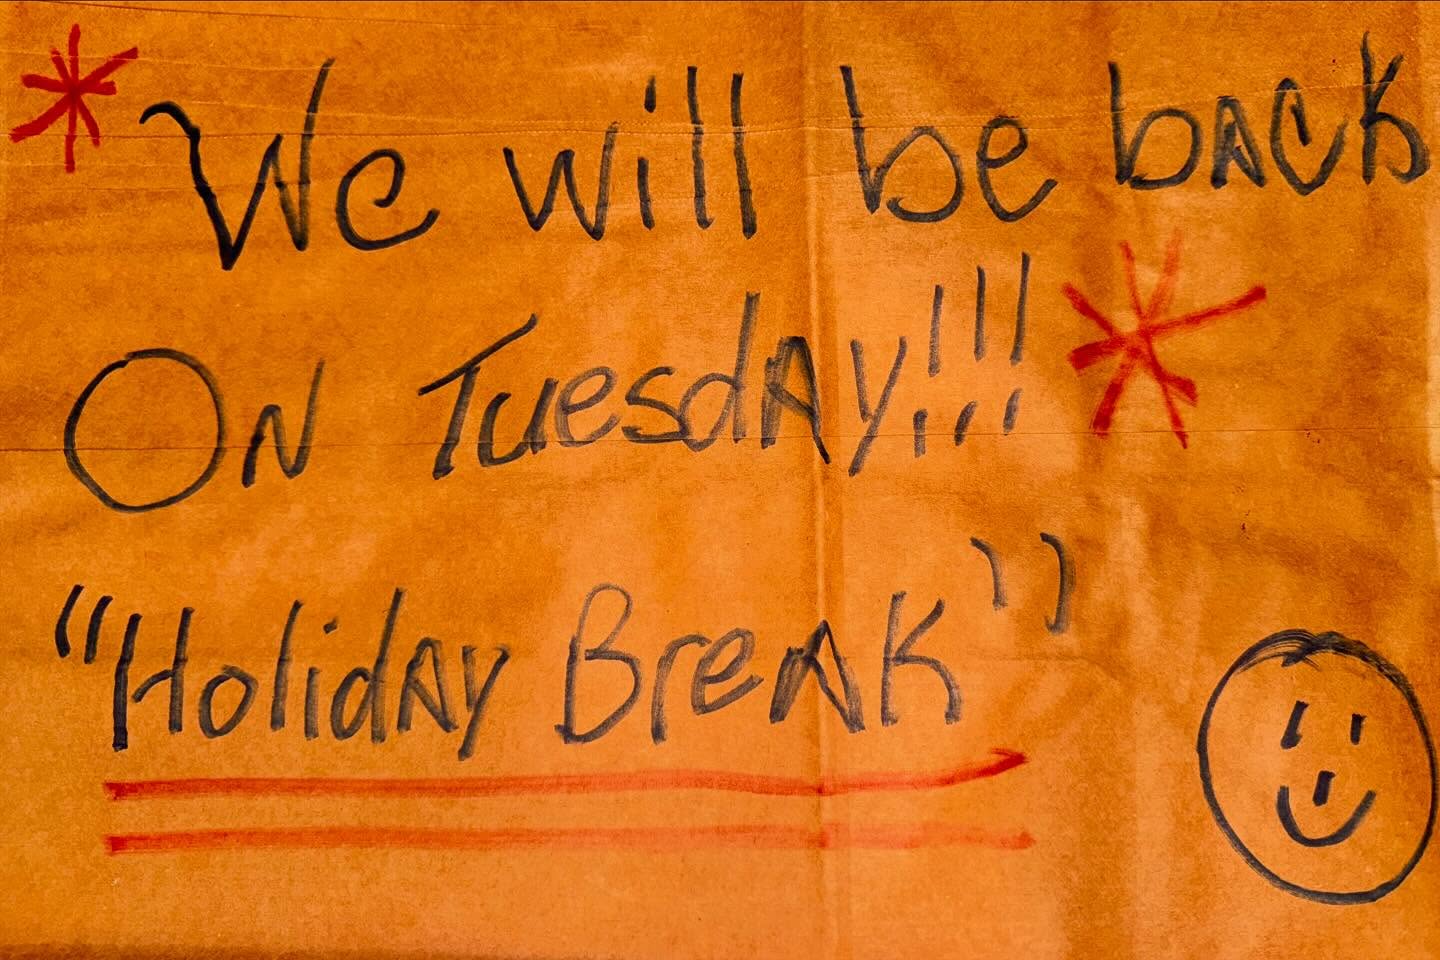 *We will be back
On Tuesday!!! *
"Holiday Break"